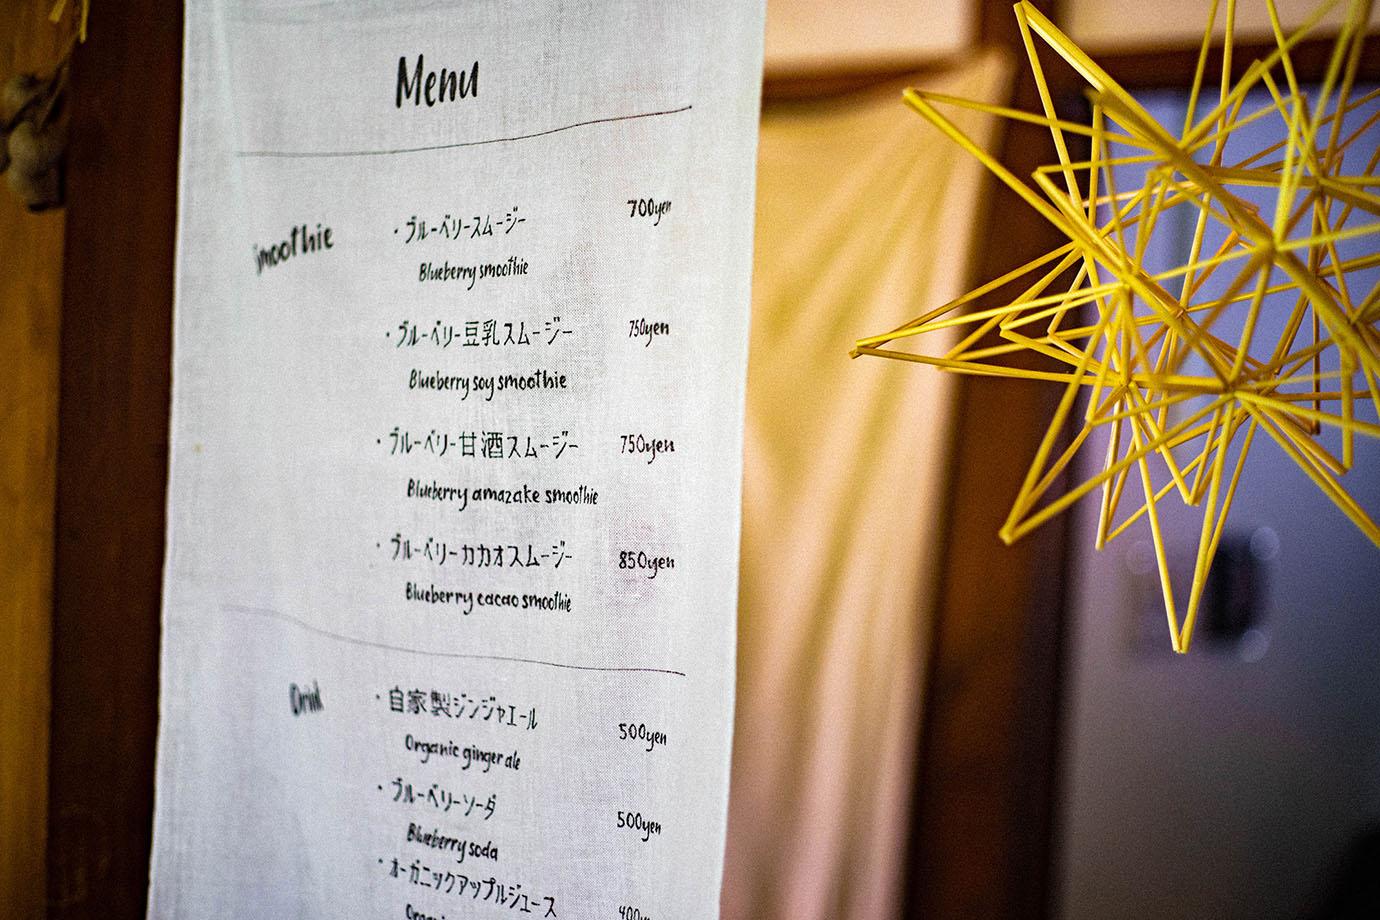 Menu
smoothie
・ブルーベリースムージー 700yen
Blueberry smoothie
・ブルーベリー豆乳スムージー 750yen
Blueberry soy smoothie
・ブルーベリー甘酒スムージー 750yen
Blueberry amazake smoothie
・ブルーベリーカカオスムージー 850yen
Blueberry cacao smoothie
Drink
・自家製ジンジャエール 500yen
Organic ginger ale
・ブルーベリーソーダ 500yen
Blueberry soda
・オーガニックアップルジュース 400yen